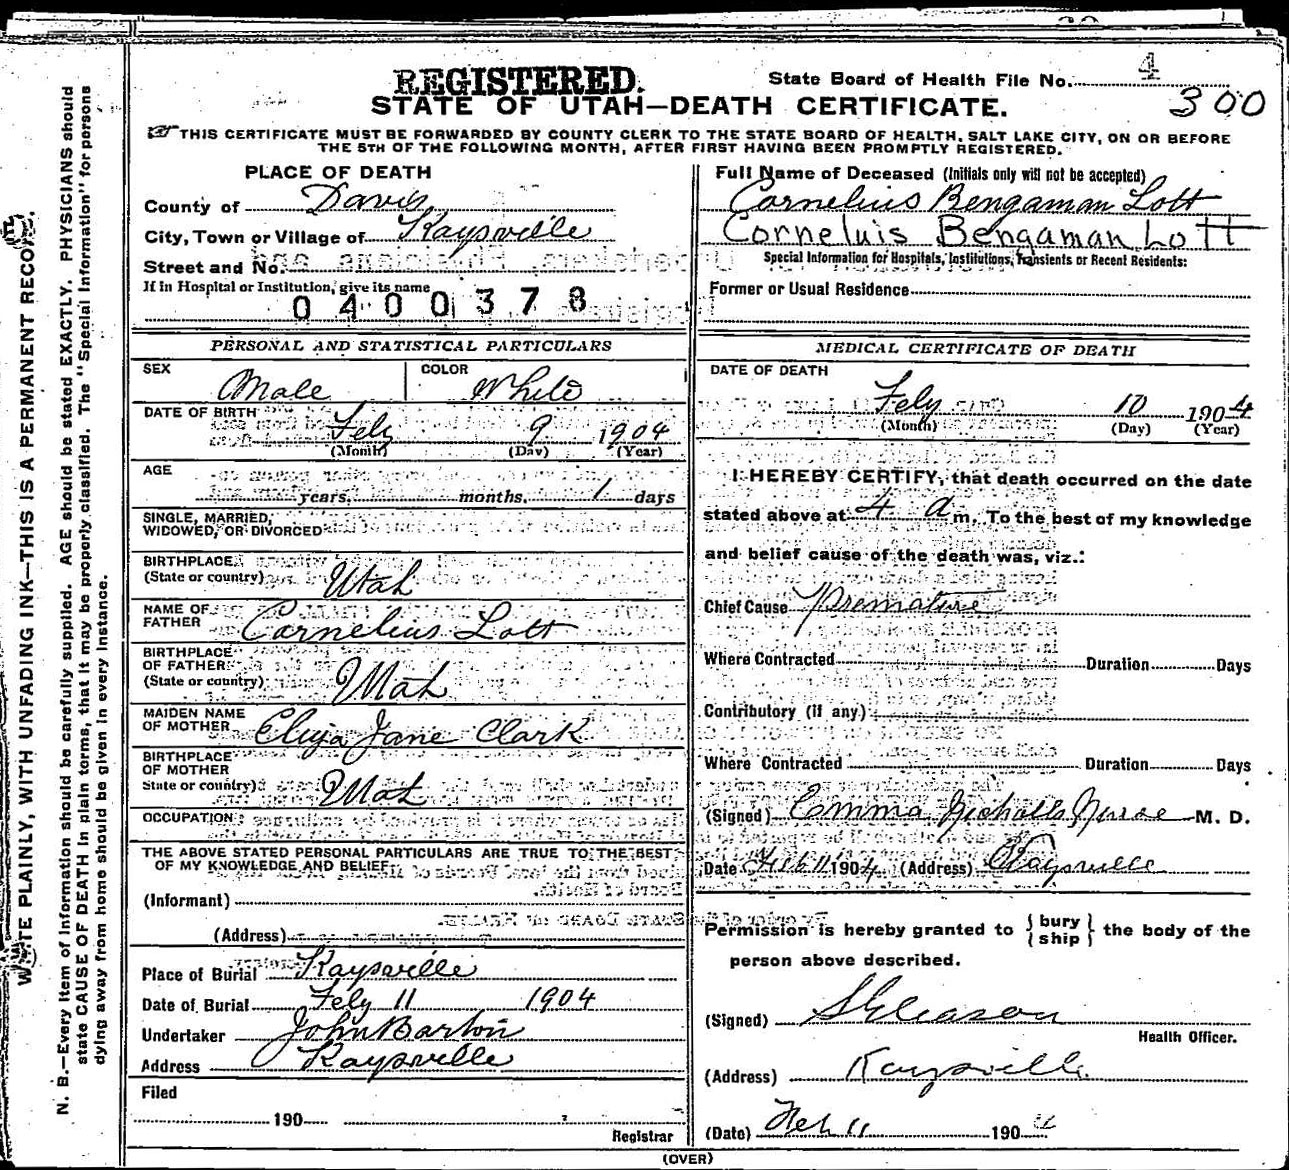 REGISTERED.
State Board of Health File No. 4
STATE OF UTAH—DEATH CERTIFICATE.
300
THIS CERTIFICATE MUST BE FORWARDED BY COUNTY CLERK TO THE STATE BOARD OF HEALTH, SALT LAKE CITY, ON OR BEFORE
THE 5TH OF THE FOLLOWING MONTH, AFTER FIRST HAVING BEEN PROMPTLY REGISTERED.
PLACE OF DEATH
County of Davis
City, Town or Village of Kaysville
Street and No.
If in Hospital or Institution, give its name
0400378
Full Name of Deceased (Initials only will not be accepted)
Cornelius Bengaman Lott
Corneluis Bengaman Lott
Special Information for Hospitals, Institutions, Transients or Recent Residents:
Former or Usual Residence
PERSONAL AND STATISTICAL PARTICULARS
SEX Male COLOR White
DATE OF BIRTH Feby 9 1904
(Month) (Day) (Year)
AGE
years, months, 1 days
SINGLE, MARRIED,
WIDOWED, OR DIVORCED
BIRTHPLACE
(State or country) Utah
NAME OF
FATHER Cornelius Lott
BIRTHPLACE
OF FATHER
(State or country) Utah
MAIDEN NAME
OF MOTHER Eliza Jane Clark
BIRTHPLACE
OF MOTHER
State or country) Utah
OCCUPATION
THE ABOVE STATED PERSONAL PARTICULARS ARE TRUE TO THE BEST
OF MY KNOWLEDGE AND BELIEF
(Informant)
(Address)
Place of Burial Kaysville
Date of Burial Feby 11 1904
Undertaker John Barton
Address Kaysville
Filed
190
Registrar
MEDICAL CERTIFICATE OF DEATH
DATE OF DEATH
Feby 10 1904
(Month) (Day) (Year)
I HEREBY CERTIFY, that death occurred on the date
stated above at 4 a m. To the best of my knowledge
and belief cause of the death was, viz.:
Chief Cause Premature
Where Contracted Duration Days
Contributory (if any)
Where Contracted Duration Days
(Signed) Emma Nicholls Nurse M. D.
Date Feb 11 1904 (Address) Kaysville
Permission is hereby granted to { bury ship } the body of the
person above described.
(Signed) S Gleason
Health Officer.
(Address) Kaysville
(Date) Feb 11 1904
(OVER)
WRITE PLAINLY, WITH UNFADING INK—THIS IS A PERMANENT RECORD.
N. B.—Every item of Information should be carefully supplied. AGE should be stated EXACTLY. PHYSICIANS should
state CAUSE OF DEATH in plain terms, that it may be properly classified. The "Special Information" for persons
dying away from home should be given in every instance.